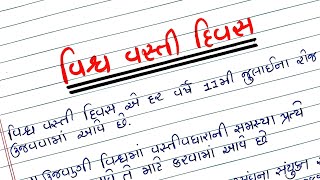 વિશ્વ વસ્તી દિવસ
વિશ્વ વસ્તી દિવસ એ દર વર્ષે 11મી જુલાઈના રોજ
ઉજવવામાં આવે છે.
ઉજવણી વિશ્વમાં વસ્તીવધારાની સમસ્યા પ્રત્યે
તે માટે કરવામાં આવે છે
સંયુક્ત